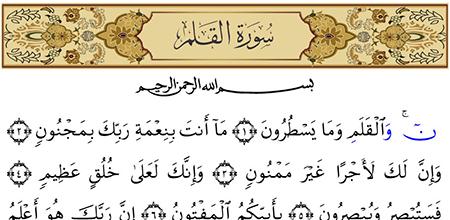 سُورَةُ القَلَمِ
بسم الله الرحمن الرحيم
نٓ ۚ وَٱلْقَلَمِ وَمَا يَسْطُرُونَ ﴿١﴾ مَآ أَنتَ بِنِعْمَةِ رَبِّكَ بِمَجْنُونٍ ﴿٢﴾
وَإِنَّ لَكَ لَأَجْرًا غَيْرَ مَمْنُونٍ ﴿٣﴾ وَإِنَّكَ لَعَلَىٰ خُلُقٍ عَظِيمٍ ﴿٤﴾
فَسَتُبْصِرُ وَيُبْصِرُونَ ﴿٥﴾ بِأَييِّكُمُ ٱلْمَفْتُونُ ﴿٦﴾ إِنَّ رَبَّكَ هُوَ أَعْلَمُ